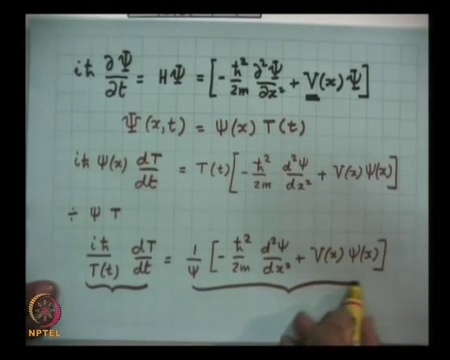 iħ ∂Ψ/∂t = HΨ = [-ħ²/2m ∂²Ψ/∂x² + V(x)Ψ]
Ψ(x,t) = ψ(x) T(t)
iħ ψ(x) dT/dt = T(t)[-ħ²/2m d²ψ/dx² + V(x)ψ(x)]
÷ ψ T
iħ/T(t) dT/dt = 1/ψ [-ħ²/2m d²ψ/dx² + V(x) ψ(x)]
NPTEL